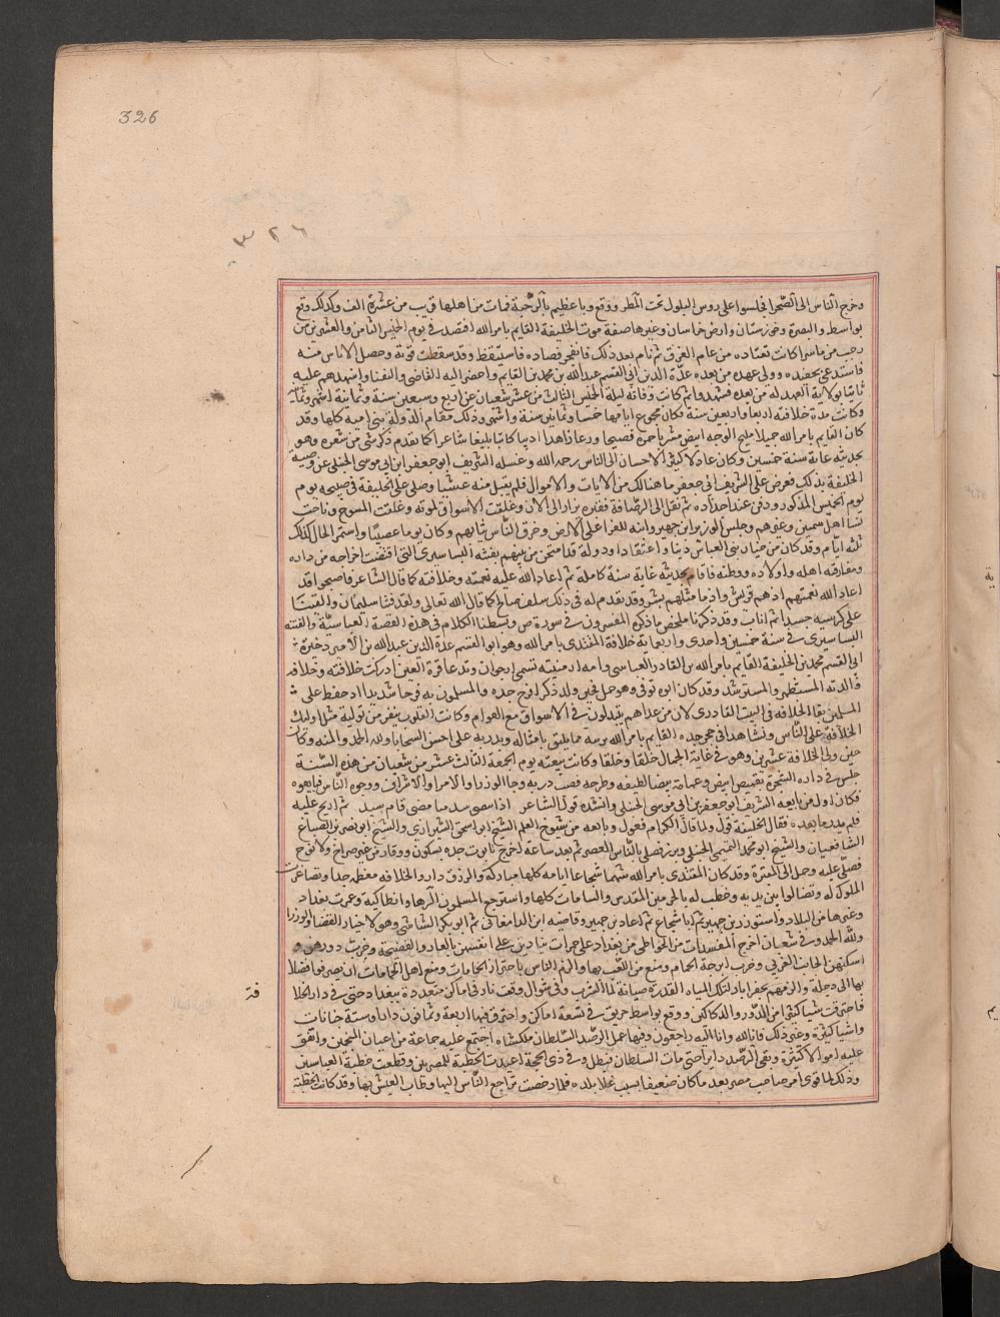 326
٣٢٦
وخرج الناس الى الصحرا فجلسوا على روس التلول تحت المطر ووقع وبا عظيم بالرحبة فمات من اهلها قريب من عشرة الف وكذلك وقع
بواسط والبصرة وخوزستان وارض خراسان وغيرها صفة موت الخليفة القايم بامر الله افتصد في يوم الخميس الثامن والعشرين من
رجب من ماشرا كانت تعتاده من عام الغرق ثم نام بعد ذلك فانفجر فصاده فاستيقظ وقد سقطت قوته وحصل الاياس منه
فاستدعى بحفيده وولى عهده من بعده عدة الدين ابي القسم عبد الله بن محمد بن القايم واحضر اليه القاضي والنقبا واشهدهم عليه
ثانيا بولاية العهد له من بعده فشهدوا ثم كانت وفاته ليلة الخميس الثالث من عشر شعبان عن اربع وسبعين سنة وثمانية اشهر وثمانية
وكانت مدة خلافته اربعا واربعين سنة فكان مجموع ايامها خمسا وثمانين سنة واشهر وذلك مقام الدولة بني امية كلها وقد
كان القايم بامر الله جميلا مليح الوجه ابيض مشربا حمرة فصيحا ورعا زاهدا اديبا كاتبا بليغا شاعرا كما تقدم ذكر شي من شعره وهو
بحديثه عانة سنة خمسين وكان عادلا كثير الاحسان الى الناس رحمه الله وغسله الشريف ابو جعفر ابن ابي موسى الحنبلي عن وصية
الخليفة بذلك فعرض على الشريف ابي جعفر ما هنالك من الاثاث والاموال فلم يقبل منه شيا وصلى على الخليفة في صبيحة يوم
يوم الخميس المذكور ودفن عند اجداده ثم نقل الى الرصافة فقبره يزار الى الان وغلقت الاسواق لموته وعلقت المسوح وناحت
نسا الهاشميين وغيرهم وجلس الوزير ابن جهير وابنه للعزا على الارض وخرق الناس ثيابهم وكان يوما عصيبا واستمر الحال كذلك
ثلثة ايام وقد كان من خيار بني العباس دينا واعتقادا ودولة قد امتحن من بينهم بفتنة البساسيري التي اقتضت اخراجه من داره
ومفارقة اهله واولاده ووطنه فاقام بحديثه عانة سنة كاملة ثم اعاد الله عليه نعمته وخلافته كما قال الشاعر فاصبحوا قد
اعاد الله نعمتهم اذ هم قريش واذ ما مثلهم بشر وقد تقدم له في ذلك سلف صالح كما قال الله تعالى ولقد فتنا سليمان والقينا
على كرسيه جسدا ثم اناب وقد ذكرنا ملخص ما ذكره المفسرون في سورة ص وبسطنا الكلام في هذه القصة العباسية والفتنة
البساسيري في سنة خمسين واحدى واربعماية خلافة المقتدي بامر الله وهو ابو القسم عدة الدين عبد الله بن الامير ذخيرة
ابي القسم محمد بن الخليفة القايم بامر الله بن القادر العباسي وامه ارمنية تسمى ارجوان وتدعا قرة العين ادركت خلافته وخلافة
ولديه المستظهر والمسترشد وقد كان ابوه توفي وهو حمل فحين ولد ذكرا فرح جده والمسلمون به فرحا شديدا اذ حفظ على
المسلمين بقا الخلافة في البيت القادري لان من عداهم يتبذلون في الاسواق مع العوام وكانت القلوب تنفر من تولية مثل اوليك
الخلافة على الناس ونشا هذا في حجر جده القايم بامر الله يربيه مما يليق بامثاله ويدربه على احسن السجايا ولله الحمد والمنه وكان
حين ولي الخلافة عشرين وهو في غاية الجمال خلقا وخلقا وكانت بيعته يوم الجمعة الثالث عشر من شعبان من هذه السنة
جلس في دار الشجرة بقميص ابيض وعمامة بيضا لطيفه وطرحه قصب دريه وجا الوزرا والامرا والاشراف ووجوه الناس فبايعوه
فكان اول من بايعه الشريف ابو جعفر بن ابي موسى الحنبلي وانشده قول الشاعر اذا سيد منا مضى قام سيد ثم ارتج عليه
فلم يدر ما بعده فقال الخليفة قول ولما قال الكرام فعول وبايعه من شيوخ العلم الشيخ ابو اسحق الشيرازي والشيخ ابو نصر بن الصباغ
الشافعيان والشيخ ابو محمد التميمي الحنبلي وبرز فصلى بالناس العصر ثم بعد ساعة اخرج تابوت جده بسكون ووقار من غير صراخ ولا نوح
فصلى عليه وحمل الى المقبرة وقد كان المقتدي بامر الله شهما شجاعا ايامه كلها مباركة والرزق دار والخلافه معظمه جدا وتصاغرت
الملوك له وتضالوا بين يديه وخطب له بالحرمين المقدس والشامات كلها واسترجع المسلمون الرها وانطاكية وعمرت بغداد
وغيرها من البلاد واستوزر بن جهير ثم ابا شجاع ثم اعاد بن جهير وقاضيه ابن الدامغاني ثم ابو بكر الشاشي وهولا خيار القضا والوزرا
ولله الحمد وفي شعبان اخرج المفسدات من الخواطي من بغداد على حمرات ينادين على انفسهن بالعار والفضيحة وخرب دورهن و
اسكنهن الجانب الغربي وخرب ابرجة الحمام ومنع من اللعب بها والزم الناس باحتراز الحمامات ومنع اهل الحمامات ان يصرفوا فضلا
بها الى دجلة والزمهم بحفر ابار لتلك المياه القذرة صيانة لما الشرب وفي شوال وقعت نار في اماكن متعددة ببغداد حتى في دار الخلا
فاحترقت شيا كثيرا من الدور والدكاكين ووقع بواسط حريق في تسعة اماكن واحترق فيها اربعة وثمانون دارا وستة خانات
واشيا كثيرة وغير ذلك فانا لله وانا اليه راجعون وفيها عمل الرصد للسلطان ملكشاه اجتمع عليه جماعة من اعيان المنجمين وانفق
عليه اموالا كثيرة وبقي الرصد دايرا حتى مات السلطان فبطل وفي ذي الحجة اعيدت الخطبة للمصريين وقطعت خطبة العباسيين
وذلك لما قوي امر صاحب مصر بعد ما كان ضعيفا بسبب غلا بلده فلما رخصت تراجع الناس اليها وطاب العيش بها وقد كانت الخطبة
فة